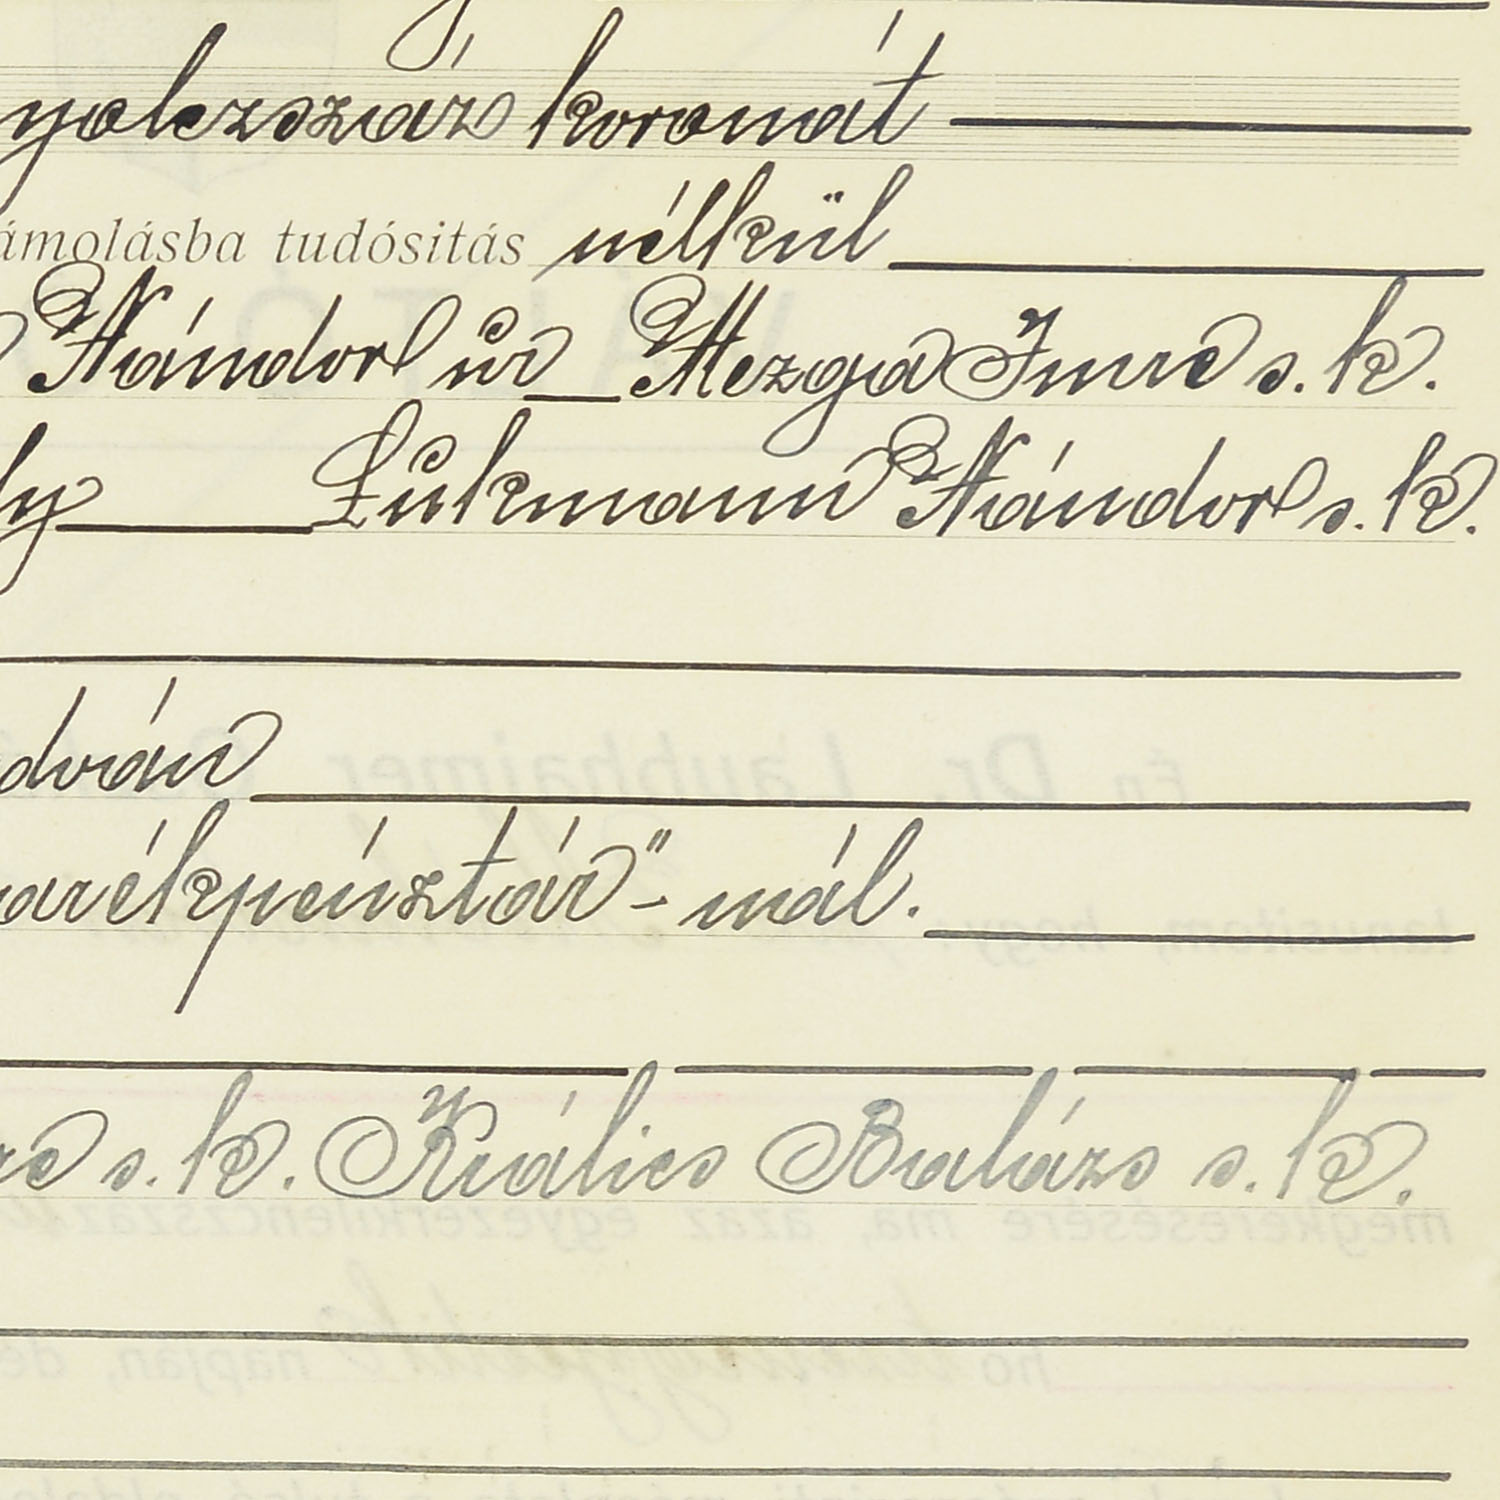 yolczszáz koronát
ámolásba tudósitás nélkül
Nándor úr Mezga Imre s. k.
ly Lukmann Nándor s. k.
dván
arékpénztár"- nál.
re s. k. Králics Balázs s. k.